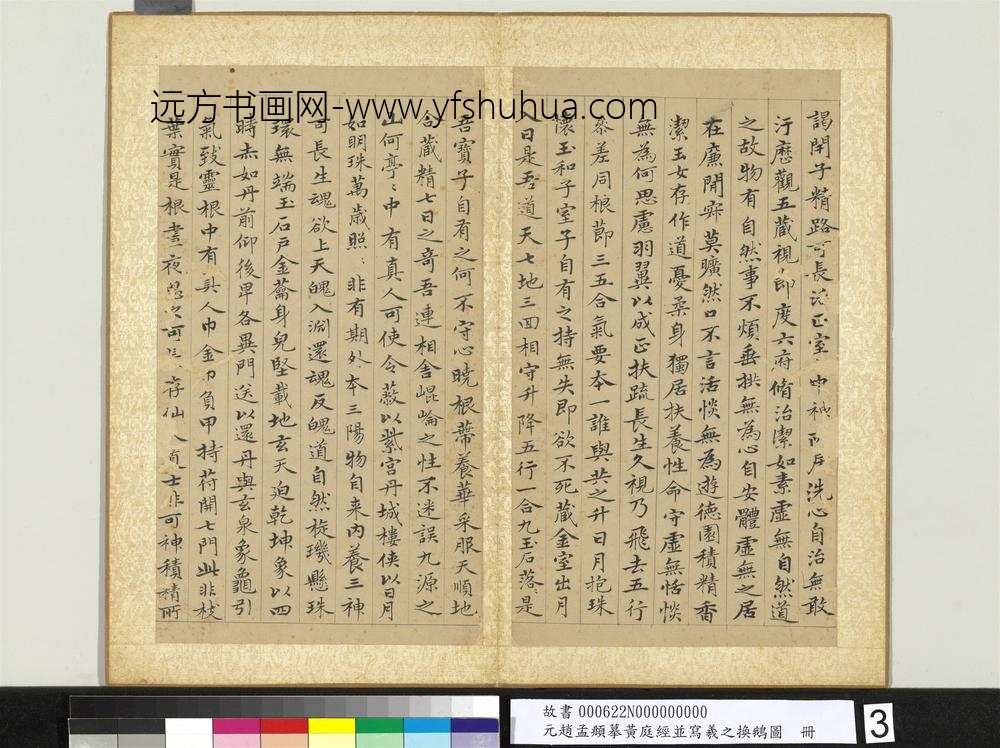 远方书画网-www.yfshuhua.com
謁閉子精路可長 正室 中 戶洗心自治無敢
汙歷觀五藏視節度六府脩治潔如素虛無自然道
之故物有自然事不煩垂拱無為心自安體虛無之居
在廉閒寂莫曠然口不言活惔無為遊德園積精香
潔玉女存作道憂柔身獨居扶養性命守虛無恬惔
無為何思慮羽翼以成正扶疏長生久視乃飛去五行
參差同根節三五合氣要本一誰與共之升日月抱珠
懷玉和子室子自有之持無失即欲不死藏金室出月
入日是吾道天七地三回相守升降五行一合九玉石落〻是
吾寶子自有之何不守心曉根蒂養華采服天順地
合藏精七日之奇吾連相舍崐崙之性不迷誤九源之
山何亭〻中有真人可使令蔽以紫宮丹城樓俠以日月
如明珠萬歲照〻非有期外本三陽物自来内養三神
可長生魂欲上天魄入淵還魂反魄道自然旋璣懸珠
環無端玉石戶金蘥身皃堅載地玄天迫乾坤象以四
時赤如丹前仰後卑各異門送以還丹與玄泉象龜引
氣致靈根中有真人巾金巾負甲持苻開七門此非枝
葉實是根晝夜思之可 存仙 士非可神積精所
故書 000622N000000000
元趙孟頫摹黃庭經並寫羲之換鵝圖 冊
3